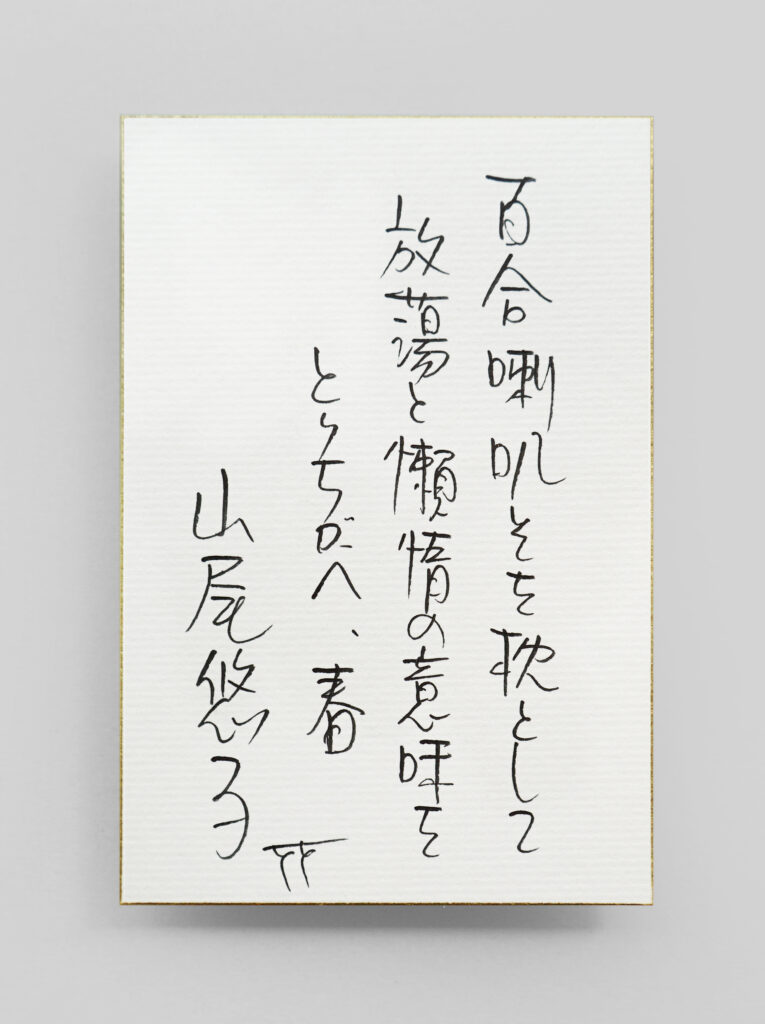 百合喇叭そを枕として
放蕩と懶惰の意味を
とりちがへ、春
山尾悠子